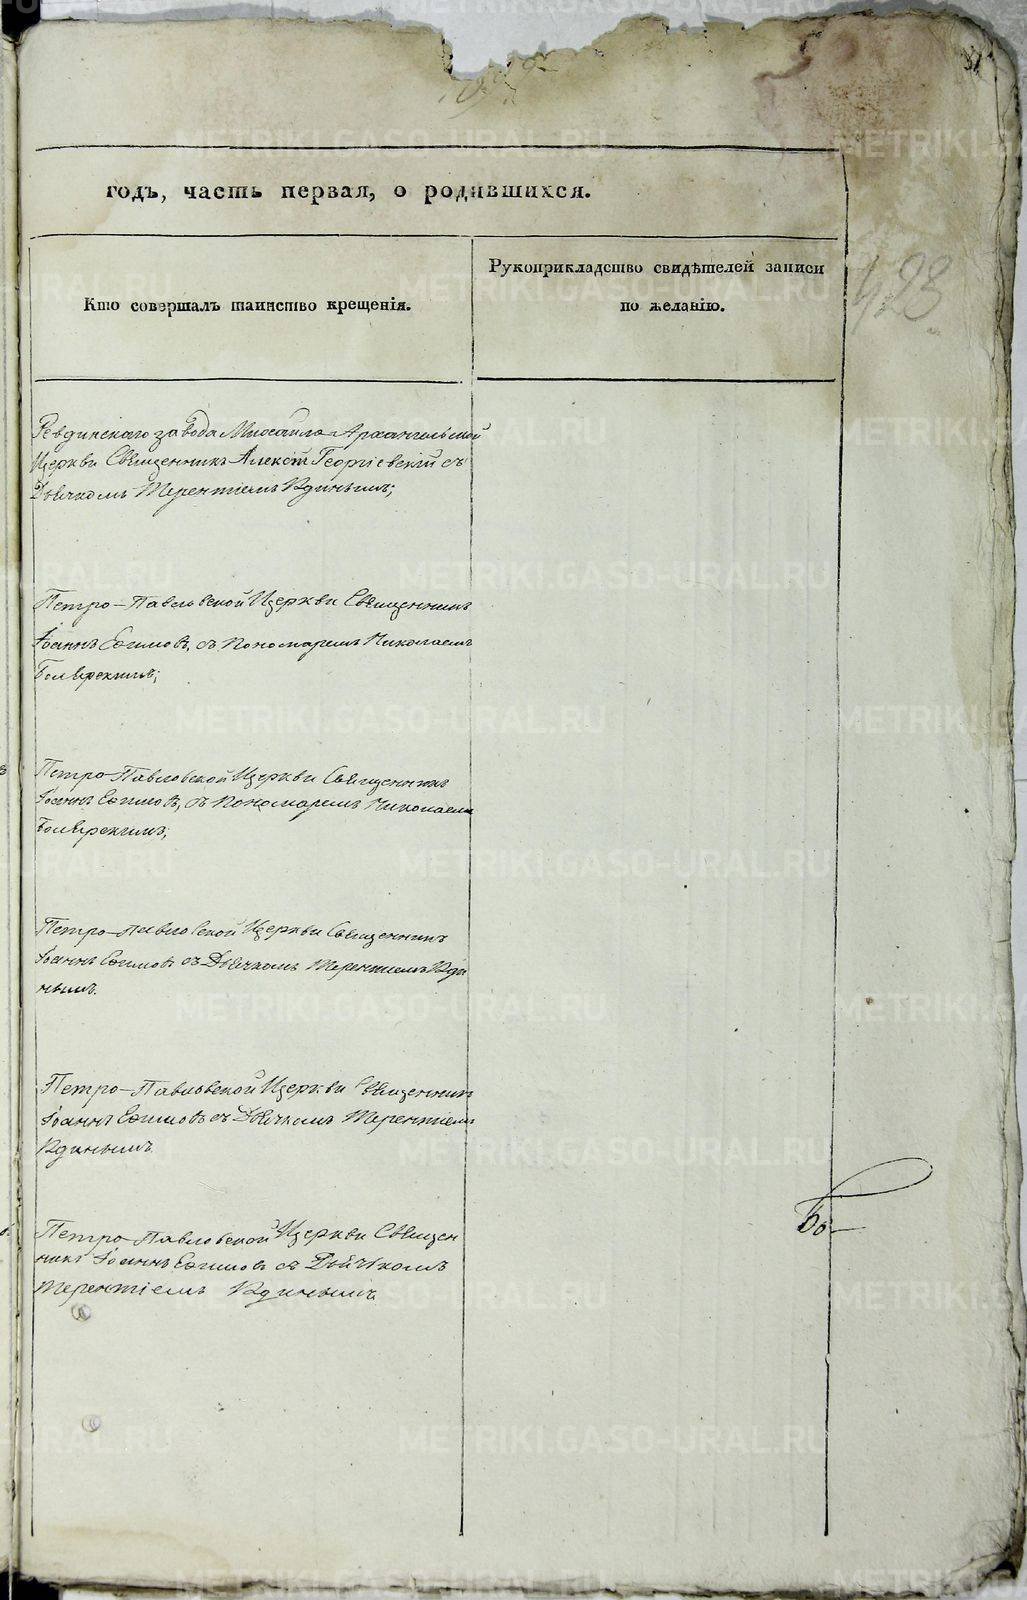 годъ, часть первая, о родившихся.
Кто совершалъ таинство крещенія.
Рукоприкладство свидѣтелей записи
по желанію.
423
Ревдинскаго завода Михаило-Архангельской
Церкви Священникъ Алексѣй Георгіевскій съ
Дьячкомъ Терентіемъ Удинымъ;
Петро-Павловской Церкви Священникъ
Іоаннъ Ефимовъ, съ Пономаремъ Николаемъ
Петро-Павловской Церкви Священникъ
Іоаннъ Ефимовъ, съ Пономаремъ Николаемъ
Петро-Павловской Церкви Священникъ
Іоаннъ Ефимовъ съ Дьячкомъ Терентіемъ Уди
нымъ.
Петро-Павловской Церкви Священникъ
Іоаннъ Ефимовъ съ Дьячкомъ Терентіемъ
Удинымъ.
Петро-Павловской Церкви Священ
никъ Іоаннъ Ефимовъ съ Дьячкомъ
Терентіемъ Удинымъ.
METRIKI.GASO-URAL.RU